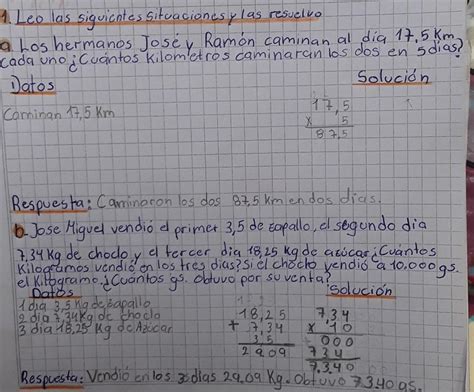 1. Leo las siguientes situaciones y las resuelvo
a. Los hermanos José y Ramón caminan al día 17,5 Km
cada uno ¿Cuántos Kilometros caminaran los dos en 5 dias?
Datos
Solución
Caminan 17,5 Km
17,5
x 5
87,5
Respuesta: Caminaron los dos 87,5 Km en dos dias.
b- Jose Miguel vendió el primer 3,5 de zapallo, el segundo dia
7,34 Kg de choclo, y el tercer dia 18,25 Kg de azúcar ¿Cuántos
Kilogramos vendió en los tres dias? Si el choclo vendió a 10.000 gs.
el Kilogramo ¿Cuántos gs. Obtuvo por su venta?
Datos
Solución
1 dia 3,5 Kg de zapallo
2 dia 7,34 Kg de choclo
3 dia 18,25 Kg de Azúcar
18,25
+ 7,34
3,5
29,09
7,34
x 10
000
734
7,340
Respuesta: Vendió en los 3 dias 29,09 Kg. Obtuvo 7.340 gs.